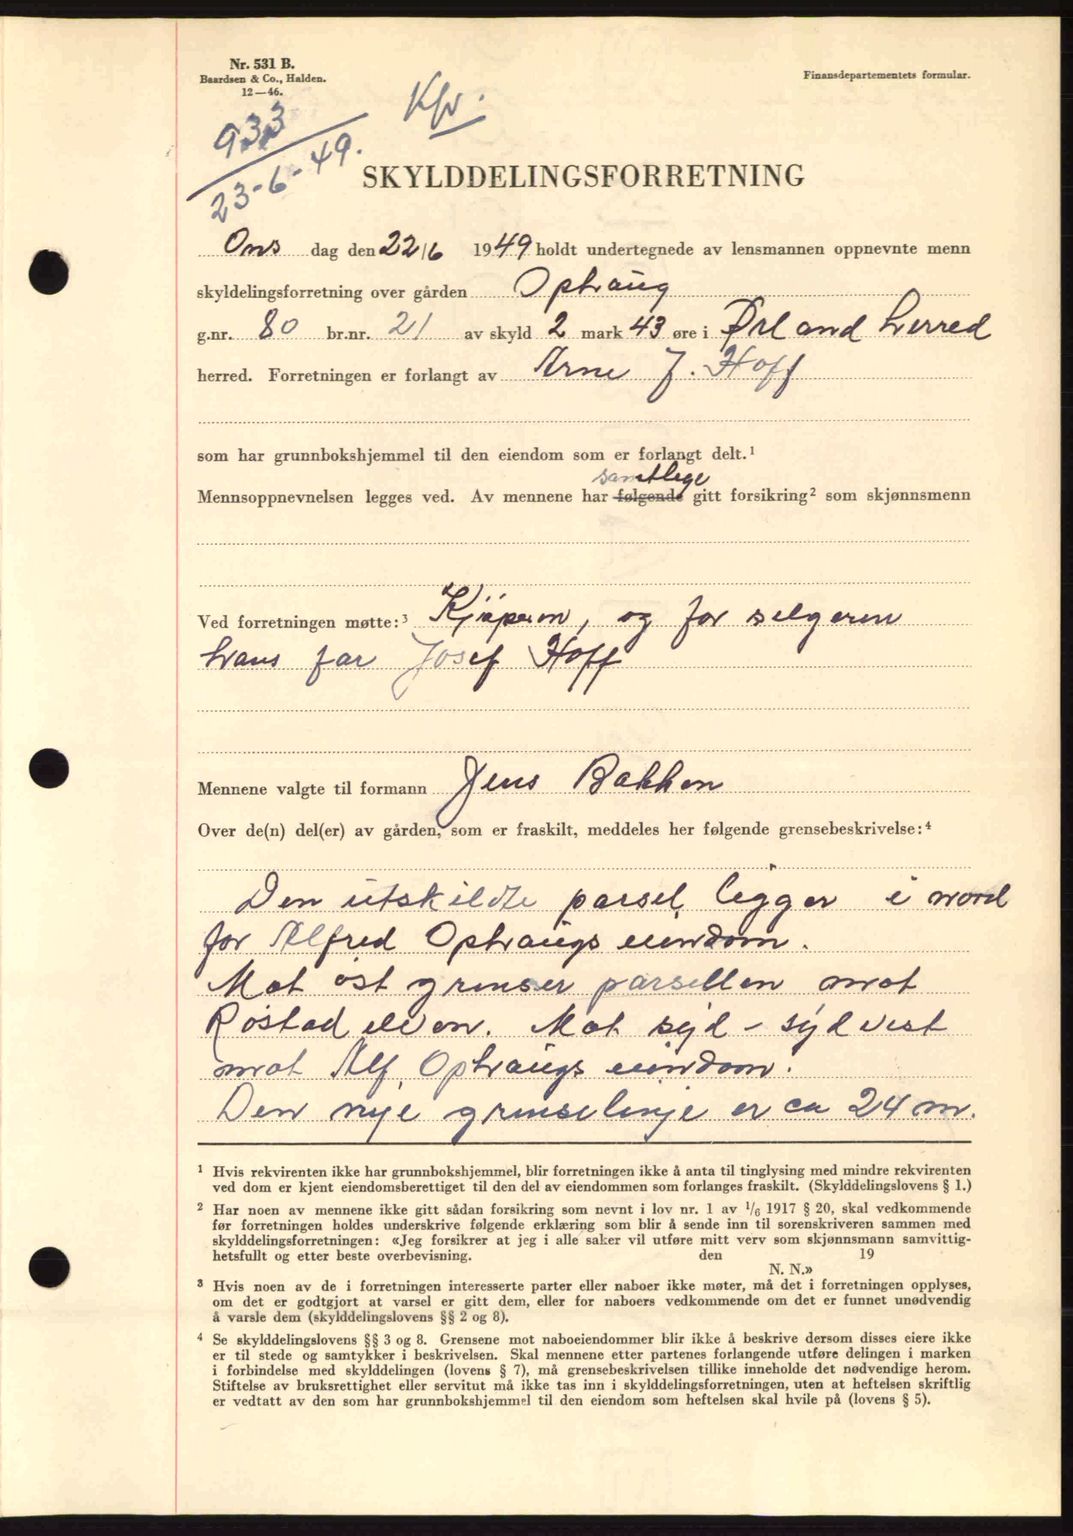 Nr. 531 B.
Baardsen & Co., Halden.
12—46.
Finansdepartementets formular.
933
23-6-49.
Kfv.
SKYLDDELINGSFORRETNING
Ons dag den 22/6 1949 holdt undertegnede av lensmannen oppnevnte menn
skyldelingsforretning over gården Ophaug
g.nr. 80 br.nr. 21 av skyld 2 mark 43 øre i Ørland herred
herred. Forretningen er forlangt av Arne J. Hoff
som har grunnbokshjemmel til den eiendom som er forlangt delt.¹
samtlege
Mennsoppnevnelsen legges ved. Av mennene har følgende gitt forsikring² som skjønnsmenn
Ved forretningen møtte:³ Kjöperen, og for selgeren
hans far Josef Hoff
Mennene valgte til formann Jens Bakken
Over de(n) del(er) av gården, som er fraskilt, meddeles her følgende grensebeskrivelse:⁴
Den utskildte parsel ligger i nord
for Alfred Ophaugs eiendom.
Mot öst grenser parsellen mot
Röstad elven. Mot syd - sydvest
mot Alf. Ophaugs eiendom.
Den nye grenselinje er ca 24 m.
¹ Hvis rekvirenten ikke har grunnbokshjemmel, blir forretningen ikke å anta til tinglysing med mindre rekvirenten
ved dom er kjent eiendomsberettiget til den del av eiendommen som forlanges fraskilt. (Skylddelingslovens § 1.)
² Har noen av mennene ikke gitt sådan forsikring som nevnt i lov nr. 1 av 1/6 1917 § 20, skal vedkommende
før forretningen holdes underskrive følgende erklæring som blir å sende inn til sorenskriveren sammen med
skylddelingsforretningen: «Jeg forsikrer at jeg i alle saker vil utføre mitt verv som skjønnsmann samvittig-
hetsfullt og etter beste overbevisning. den 19
N. N.»
³ Hvis noen av de i forretningen interesserte parter eller naboer ikke møter, må det i forretningen opplyses,
om det er godtgjort at varsel er gitt dem, eller for naboers vedkommende om det er funnet unødvendig
å varsle dem (skylddelingslovens §§ 2 og 8).
⁴ Se skylddelingslovens §§ 3 og 8. Grensene mot naboeiendommer blir ikke å beskrive dersom disses eiere ikke
er til stede og samtykker i beskrivelsen. Skal mennene etter partenes forlangende utføre delingen i marken
i forbindelse med skylddelingen (lovens § 7), må grensebeskrivelsen tillike inneholde det nødvendige herom.
Stiftelse av bruksrettighet eller servitut må ikke tas inn i skylddelingsforretningen, uten at heftelsen skriftlig
er vedtatt av den som har grunnbokshjemmel til den eiendom som heftelsen skal hvile på (lovens § 5).